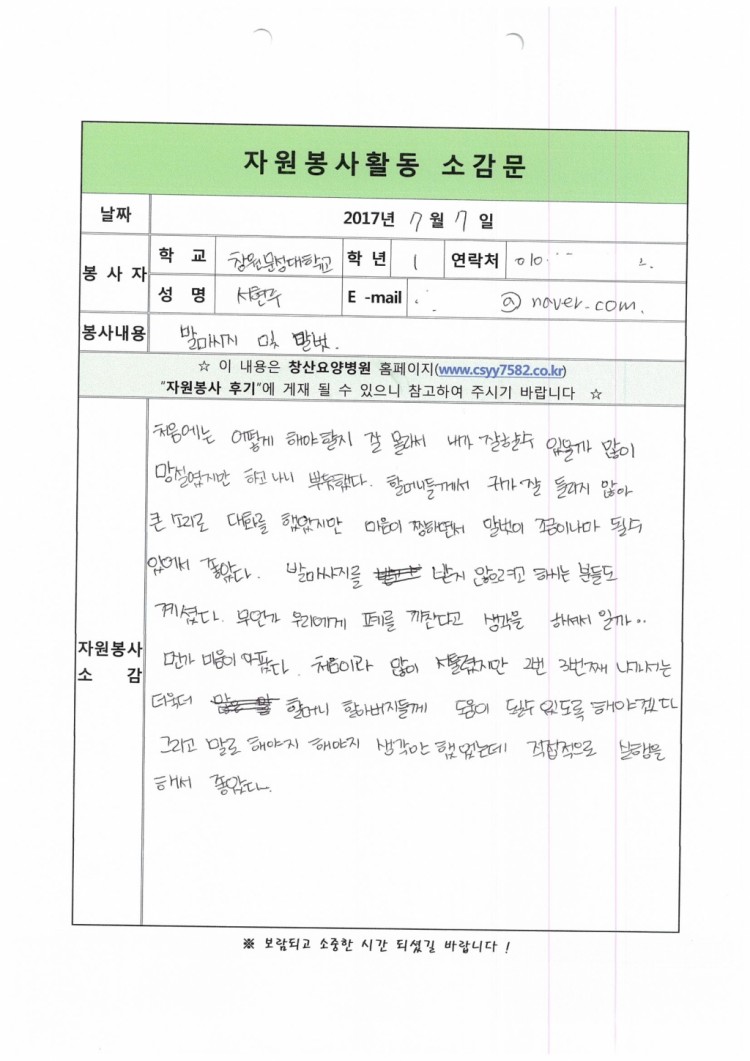 자원봉사활동 소감문
날짜 2017년 7월 7일
봉사자 학교 창원문성대학교 학년 1 연락처 010
성명 서현주 E-mail @naver.com.
봉사내용 발마사지 및 말벗.
☆ 이 내용은 창산요양병원 홈페이지(www.csyy7582.co.kr)
"자원봉사 후기"에 게재 될 수 있으니 참고하여 주시기 바랍니다 ☆
자원봉사 소감
처음에는 어떻게 해야할지 잘 몰라서 내가 잘할수 있을까 많이
망설였지만 하고 나니 뿌듯했다. 할머니들께서 귀가 잘 들리지 않아
큰 소리로 대화를 했었지만 마음이 찡하면서 말벗이 조금이나마 될수
있어서 좋았다. 발마사지를 받지 않으려고 하시는 분들도
계셨다. 무언가 우리에게 폐를 끼친다고 생각을 하셔서 일까..
먼가 마음이 아팠다. 처음이라 많이 서툴렀지만 2번 3번째 나가서는
더욱더 할머니 할아버지들께 도움이 될수 있도록 해야겠다
그리고 말로 해야지 해야지 생각만 했었는데 직접적으로 실행을
해서 좋았다.
※ 보람되고 소중한 시간 되셨길 바랍니다 !